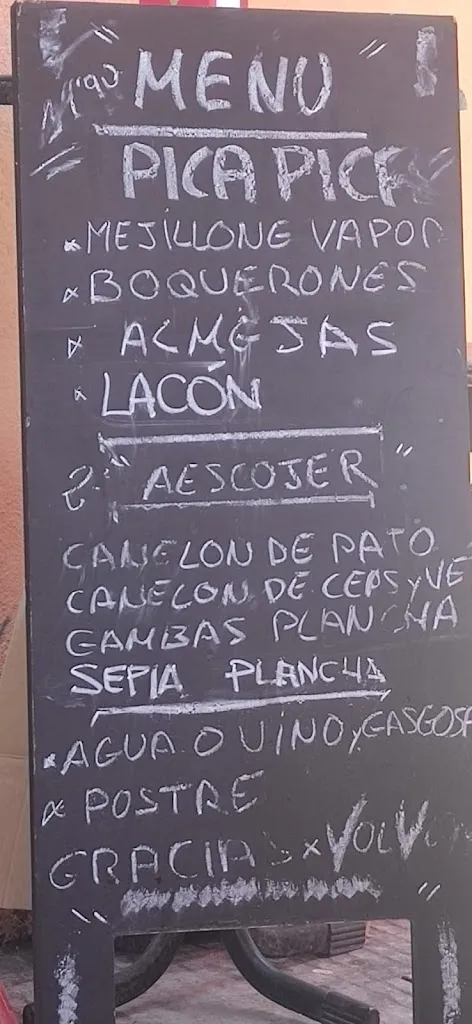 MENU
PICA PICA
MEJILLONE VAPOR
BOQUERONES
ALMEJAS
LACÓN
2º "AESCOJER"
CANELON DE PATO
CANELON DE CEPS Y VE
GAMBAS PLANCHA
SEPIA PLANCHA
AGUA O VINO, Y GASEOSA
POSTRE
GRACIAS x VOLV